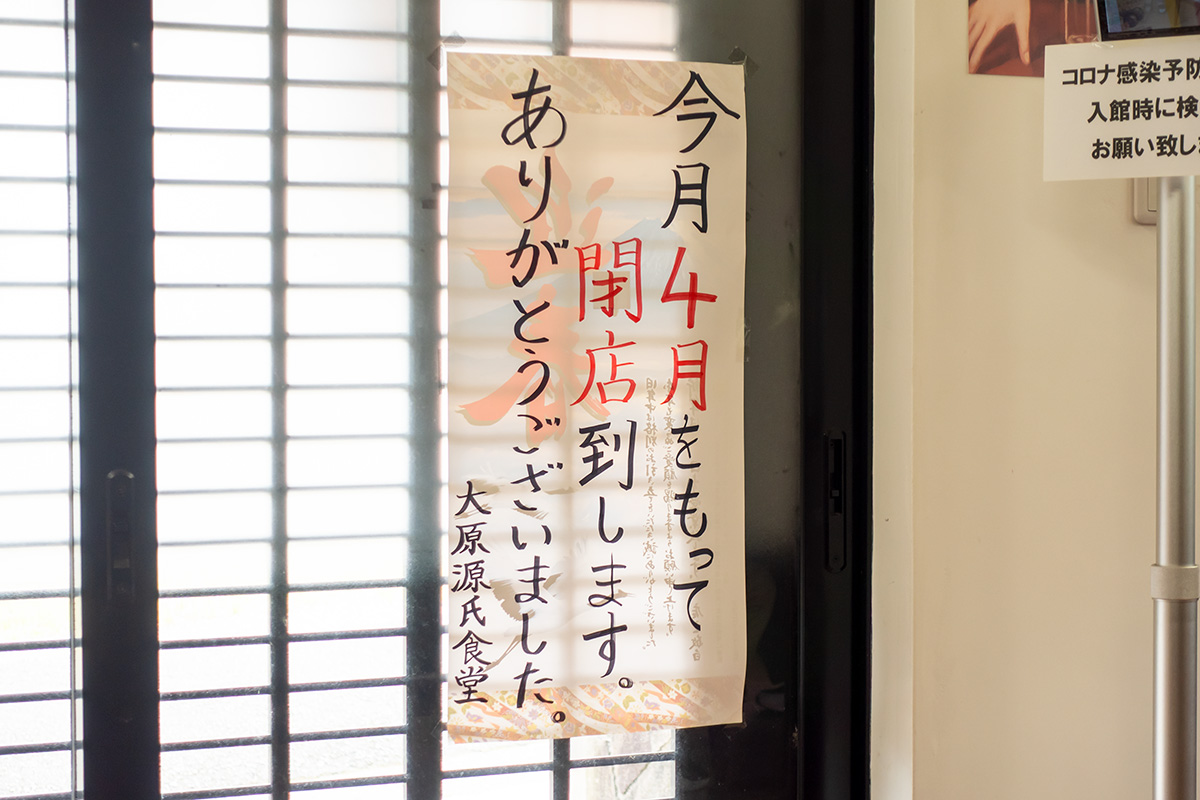 今月4月をもって
閉店到します。
ありがとうございました。
大原源氏食堂
コロナ感染予防
入館時に検
お願い致しま